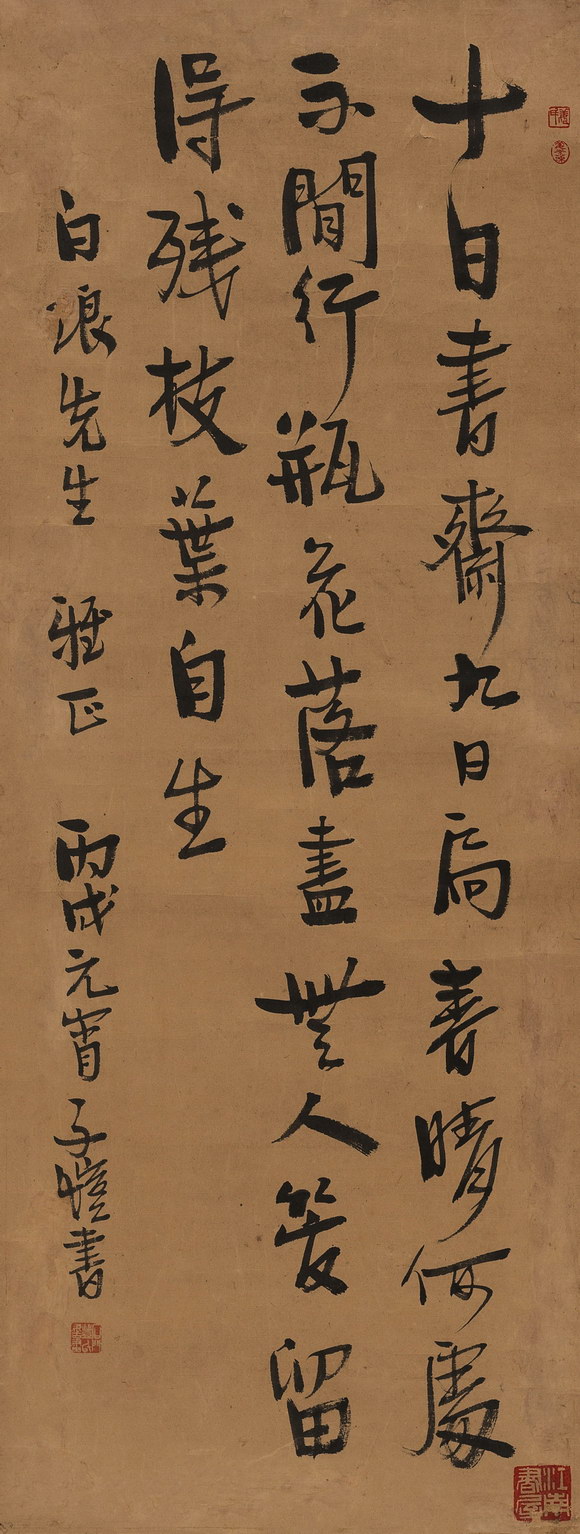 十日書齋九日扃春晴何處
不間行瓶花落盡無人管留
得残枝葉自生
白浪先生 雅正 丙戌元宵 子愷書
江南書屋